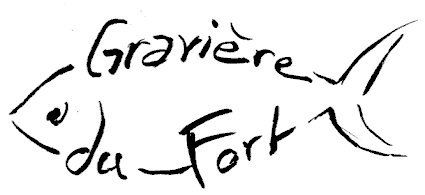 Gravière
du Fort